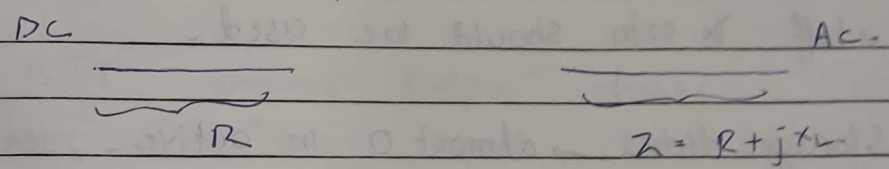 DC AC.
R Z = R + jXL